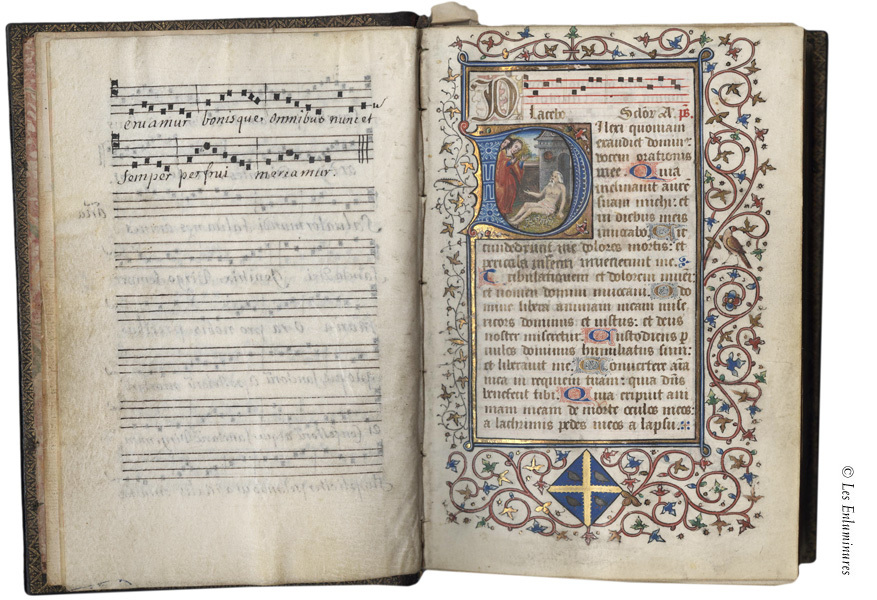 eruamur bonisque, omnibus nunc et
semper perfrui meriamur.
Placebo
Dilexi quoniam
exaudiet domin9
vocem orationis
mee. Quia
inclinavit aurē
suam michi: et
in diebus meis
invocabo. Cir
cumdederunt me dolores mortis: et
pericula inferni invenerunt me.
Tribulationem et dolorem inveni
et nomen domini invocavi. O do
mine libera animam meam mise
ricors dominus et iustus: et deus
noster miseretur. Custodiens p
vulos dominus humiliatus sum:
et liberavit me. Convertere aīa
mea in requiem tuam: quia dn̄s
benefecit tibi. Quia eripuit ani
mam meam de morte oculos meos:
a lachrimis pedes meos a lapsu.
© Les Enluminures